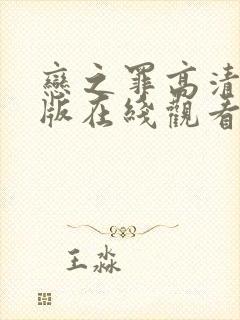 戀之罪高清
版在綫觀看
王淼